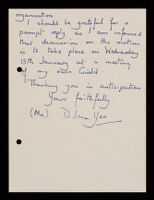 organisation
I should be grateful for a
prompt reply as I am informed
that discussion on the motion
is to take place on Wednesday
13th January at a meeting
of my own Guild.
Thanking you in anticipation
Yours faithfully
(Mrs) D